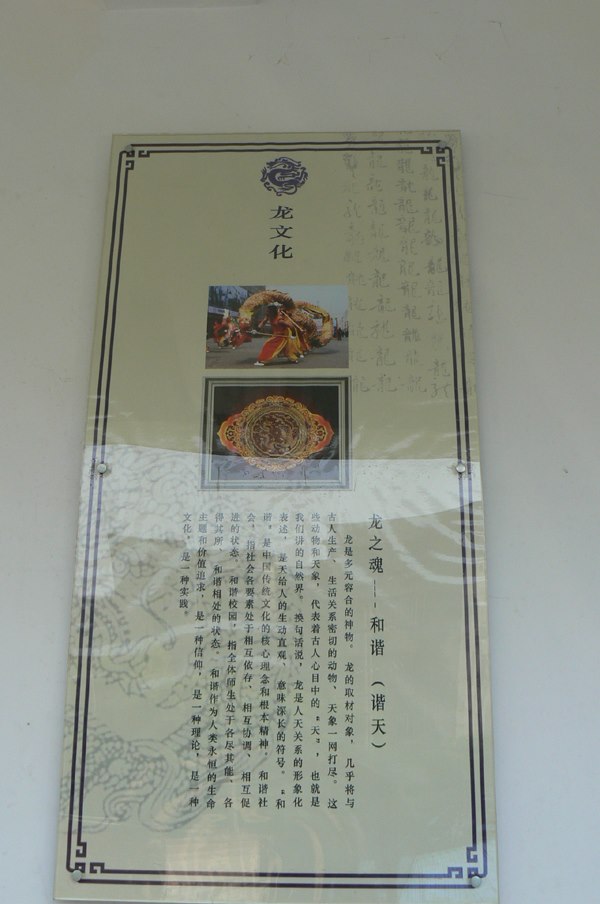 龙文化
龙之魂----和谐（谐天）
龙是多元容合的神物。龙的取材对象，几乎将与
古人生产、生活关系密切的动物、天象一网打尽。这
些动物和天象，代表着古人心目中的“天”，也就是
我们讲的自然界。换句话说，龙是人天关系的形象化
表述，是天给人的生动直观、意味深长的符号。“和
谐”是中国传统文化的核心理念和根本精神。和谐社
会，指社会各要素处于相互依存、相互协调、相互促
进的状态。和谐校园，指全体师生处于各尽其能、各
得其所、和谐相处的状态。和谐作为人类永恒的生命
主题和价值追求，是一种信仰，是一种理论，是一种
文化，是一种实践。